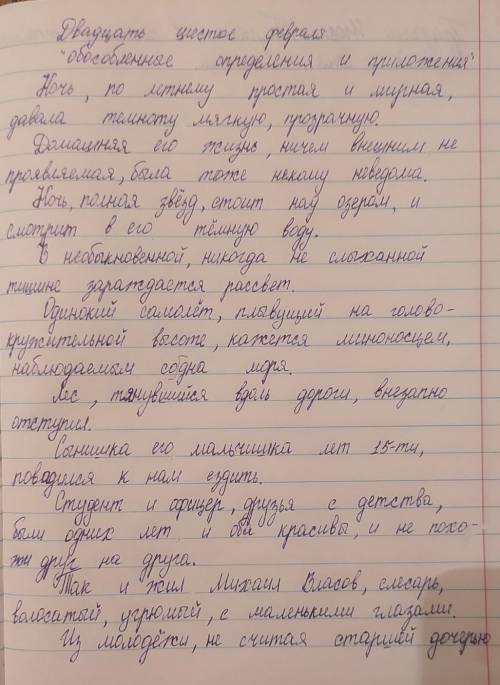 Двадцать шестое февраля
"обособленные определения и приложения"
Ночь, по летнему простая и мирная,
давала темноту мягкую, прозрачную.
Домашняя его жизнь, ничем внешним не
проявляемая, была тоже некому неведома.
Ночь, полная звёзд, стоит над озером, и
смотрит в его тёмную воду.
В необыкновенной, никогда не слыханной
тишине зараждается рассвет.
Одинокий самолёт, плывущий на голово-
кружительной высоте, кажется миноносцем,
наблюдаемым со дна моря.
Лес, тянувшийся вдоль дороги, внезапно
отступил.
Сынишка его мальчишка лет 15-ти,
повадился к нам ездить.
Студент и офицер, друзья с детства,
были одних лет и оба красивы, и не похо-
жи друг на друга.
Так и жил Михаил Власов, слесарь,
волосатый, угрюмый, с маленькими глазами.
Из молодёжи, не считая старшей дочерью